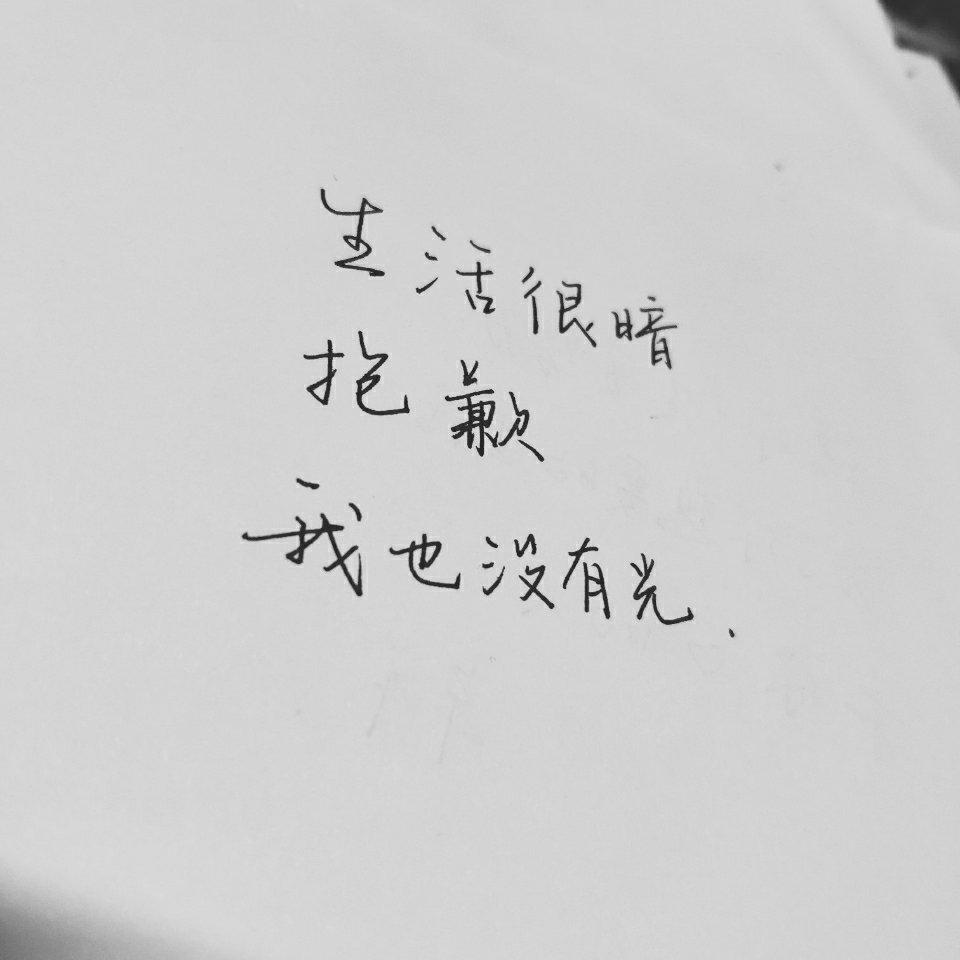 生活很暗
抱歉
我也没有光.